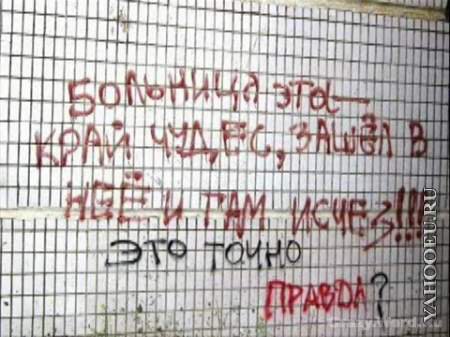 БОЛЬНИЦА ЭТА—
КРАЙ ЧУДЕС, ЗАШЁЛ В
НЕЁ И ТАМ ИСЧЕЗ!!!
ЭТО ТОЧНО
ПРАВДА?
YAHOOEU.RU